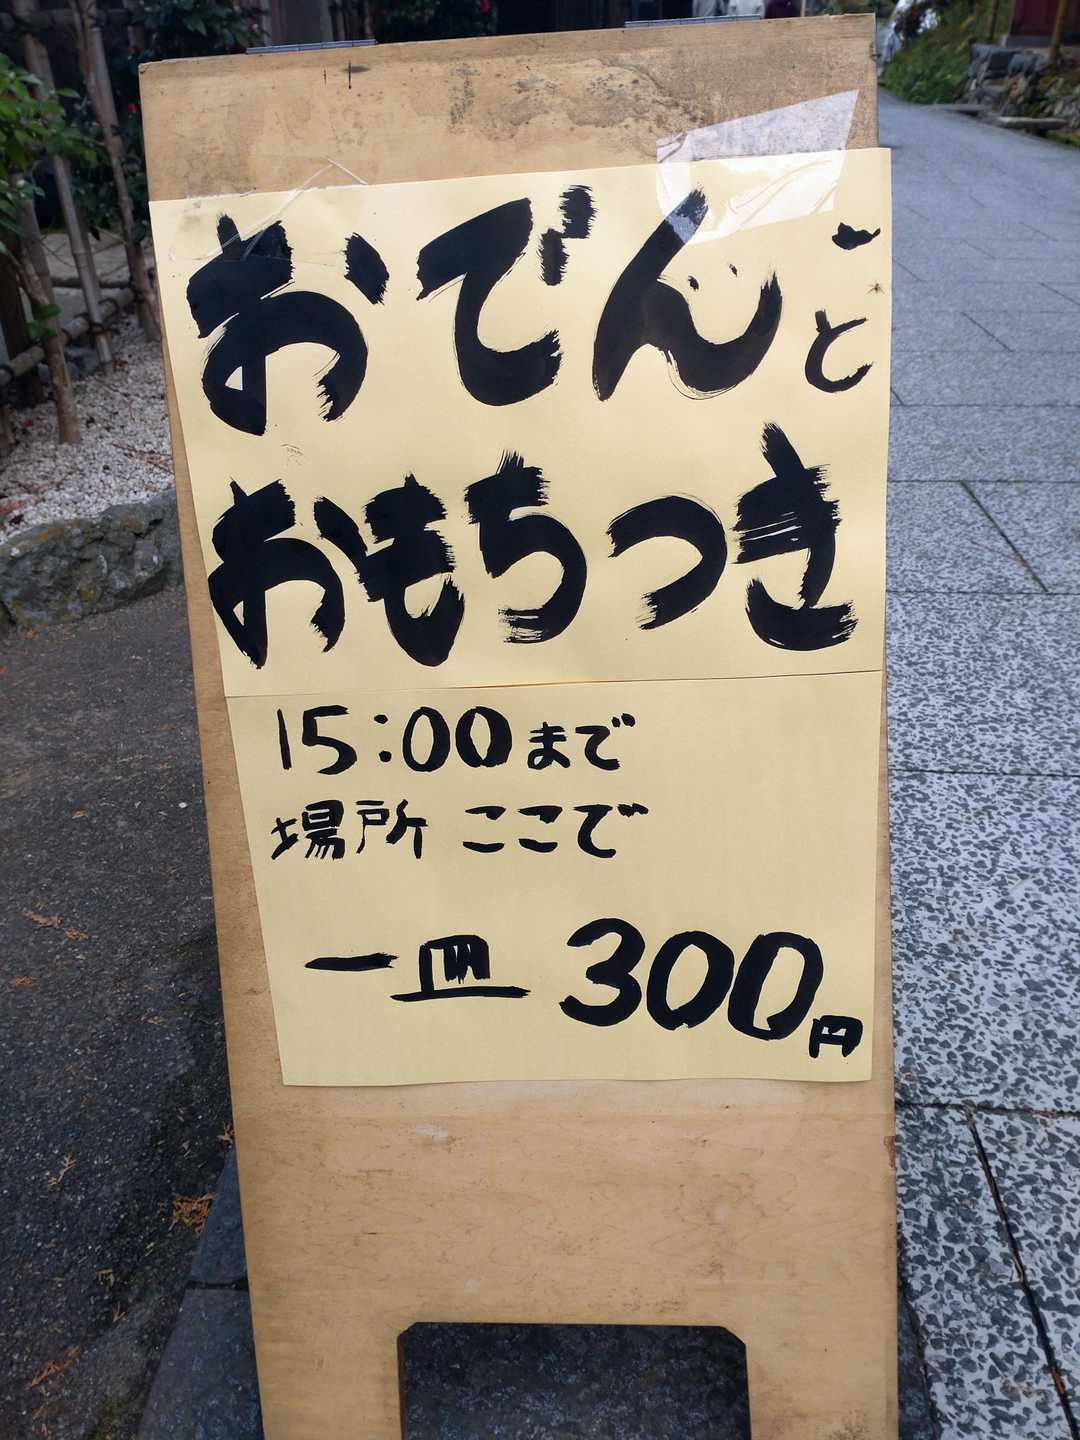 おでんと
おもちつき
15:00まで
場所 ここで
一皿 300円